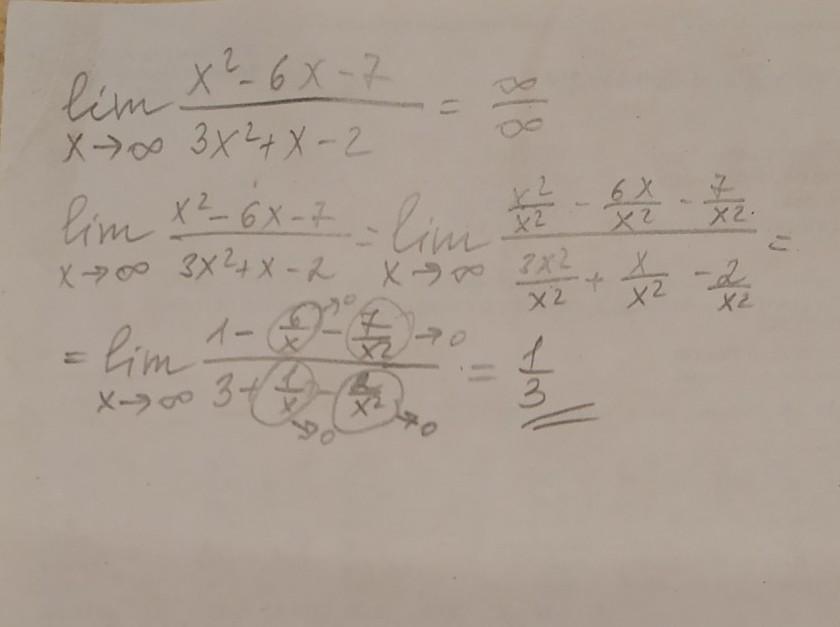 lim x→∞ (x² - 6x - 7)/(3x² + x - 2) = ∞/∞
lim x→∞ (x² - 6x - 7)/(3x² + x - 2) = lim x→∞ (x²/x² - 6x/x² - 7/x²)/(3x²/x² + x/x² - 2/x²) =
= lim x→∞ (1 - 6/x →0 - 7/x² →0)/(3 + 1/x →0 - 2/x² →0) = 1/3